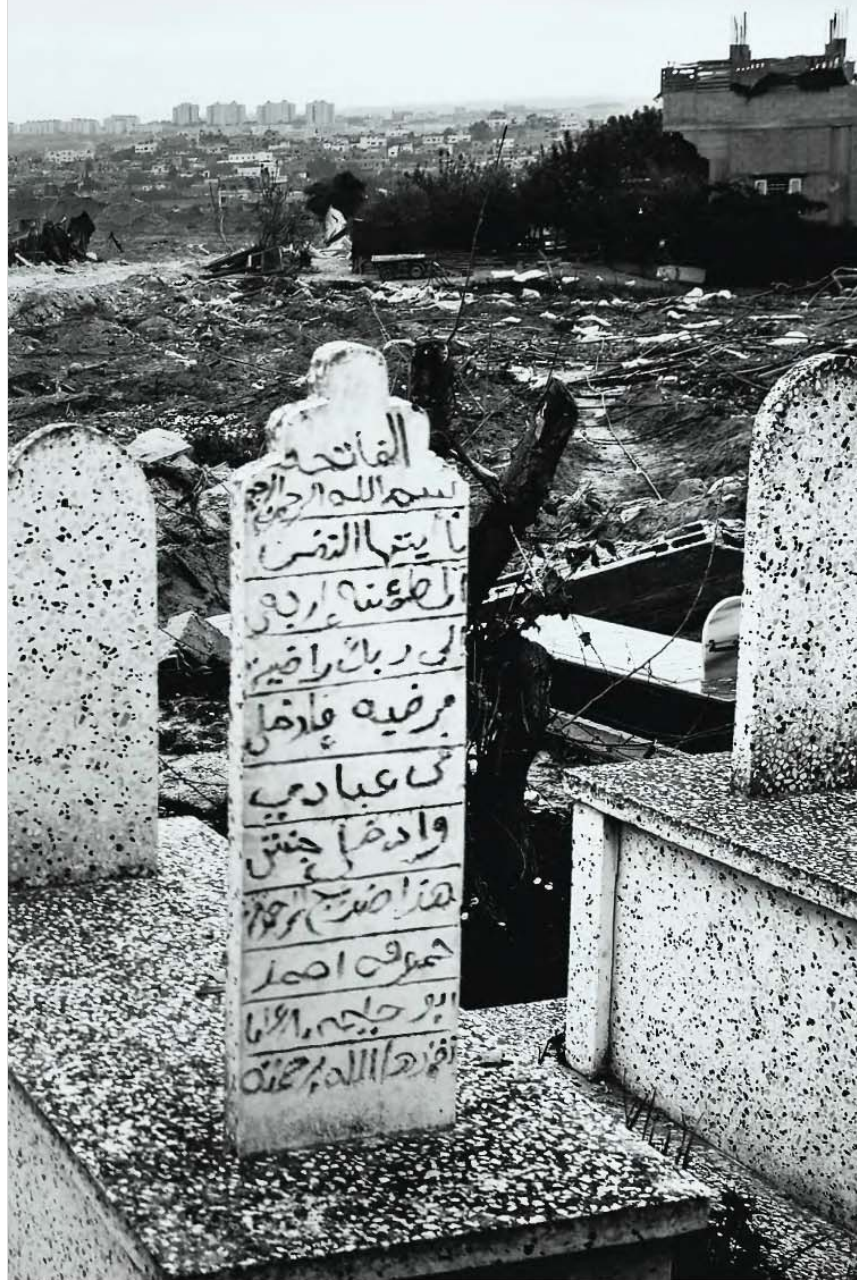 الفاتحة
بسم الله الرحمن الرحيم
يا أيتها النفس
المطمئنه إرجعي
الى ربك راضية
مرضيه فادخلي
في عبادي
وادخلي جنتي
هذا ضريح المرحومة
احمد
ابو
تغمدها الله برحمته